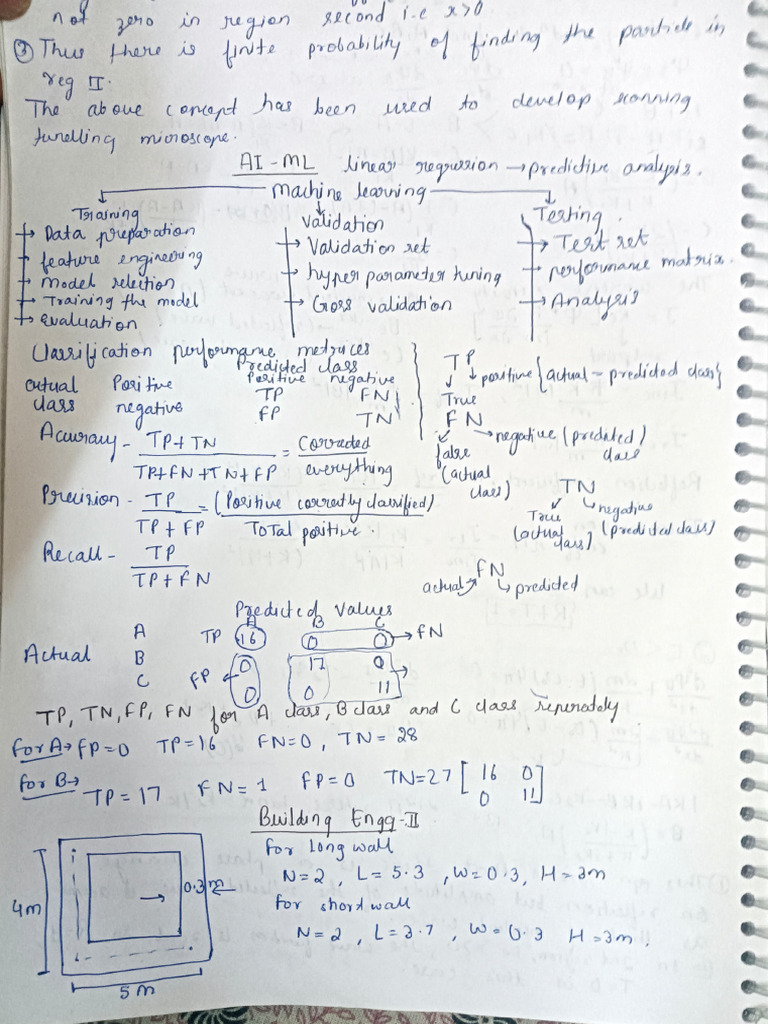 not zero in region second i.e x>0
③ Thus there is finite probability of finding the particle in
reg II.
The above concept has been used to develop scanning
tunelling microscope.
AI-ML linear regression → predictive analysis.
machine learning
Training Validation Testing
→ Data preparation → Validation set → Test set
→ feature engineering → hyper parameter tuning → performance matrix.
→ model selection → Goss validation → Analysis
→ Training the model
→ Evaluation
Classification performance metrices
Predicted class
actual Positive Positive negative
class negative TP FN
FP TN
TP
→ positive {actual = predicted class}
True
FN
→ negative (predicted) class
false
(actual class)
TN
True → negative
(actual class) (predicted class)
FN
actual predicted
Accuracy - TP+TN / TP+FN+TN+FP = / everything
Precision - TP / TP+FP = (Positive correctly classified) / Total positive.
Recall - TP / TP+FN
Predicted Values
A B C
A TP 16 0 0 → FN
Actual B 0 17 0
C FP 0 0 11
TP, TN, FP, FN for A class, B class and C class seperately
For A→ FP=0 TP=16 FN=0, TN=28
For B→ TP=17 FN=1 FP=0 TN=27 [16 0
0 11]
Building Engg-II
for long wall
N=2, L=5.3, W=0.3, H=3m
for short wall
N=2, L=3.7, W=0.3 H=3m.
0.3m
4m
5m